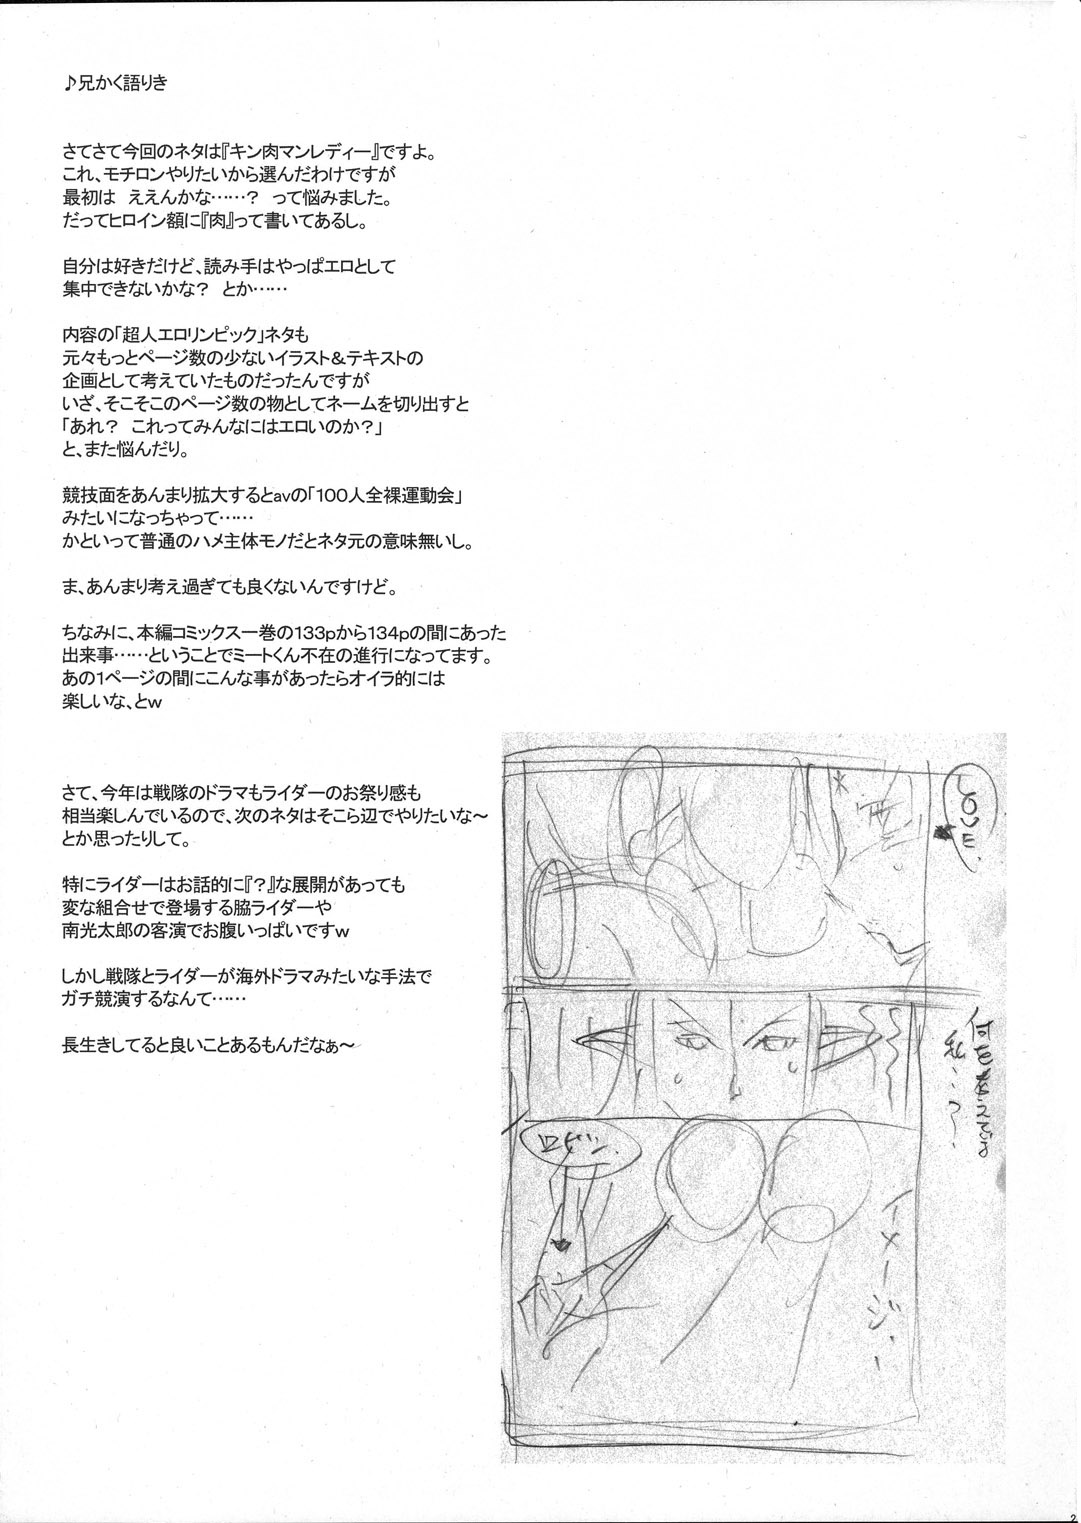 ♪兄かく語りき
さてさて今回のネタは『キン肉マンレディー』ですよ。
これ、モチロンやりたいから選んだわけですが
最初は　ええんかな……？　って悩みました。
だってヒロイン額に『肉』って書いてあるし。
自分は好きだけど、読み手はやっぱエロとして
集中できないかな？　とか……
内容の「超人エロリンピック」ネタも
元々もっとページ数の少ないイラスト＆テキストの
企画として考えていたものだったんですが
いざ、そこそこのページ数の物としてネームを切り出すと
「あれ？　これってみんなにはエロいのか？」
と、また悩んだり。
競技面をあんまり拡大するとavの「100人全裸運動会」
みたいになっちゃって……
かといって普通のハメ主体モノだとネタ元の意味無いし。
ま、あんまり考え過ぎても良くないんですけど。
ちなみに、本編コミックス一巻の133pから134pの間にあった
出来事……ということでミートくん不在の進行になってます。
あの1ページの間にこんな事があったらオイラ的には
楽しいな、とw
さて、今年は戦隊のドラマもライダーのお祭り感も
相当楽しんでいるので、次のネタはそこら辺でやりたいな～
とか思ったりして。
特にライダーはお話的に『？』な展開があっても
変な組合せで登場する脇ライダーや
南光太郎の客演でお腹いっぱいですw
しかし戦隊とライダーが海外ドラマみたいな手法で
ガチ競演するなんて……
長生きしてると良いことあるもんだなぁ～
LOVE.
私…？
ロビン.
イメージ.
2